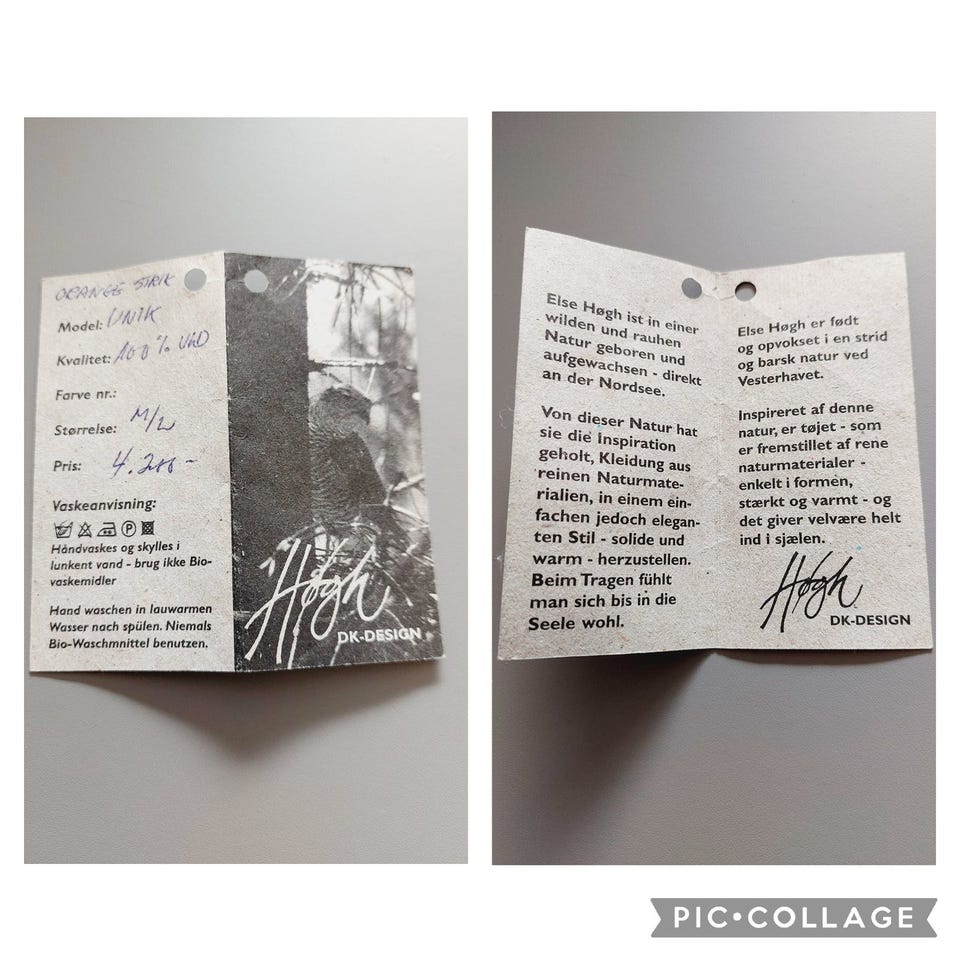 ORANGE STRIK
Model: UNIK
Kvalitet: 100% Uld
Farve nr.:
Størrelse: M/L
Pris: 4.200-
Vaskeanvisning:
P
Håndvaskes og skylles i
lunkent vand - brug ikke Bio-
vaskemidler
Hand waschen in lauwarmen
Wasser nach spülen. Niemals
Bio-Waschmnittel benutzen.
Høgh
DK-DESIGN
Else Høgh ist in einer
wilden und rauhen
Natur geboren und
aufgewachsen - direkt
an der Nordsee.
Von dieser Natur hat
sie die Inspiration
geholt, Kleidung aus
reinen Naturmate-
rialien, in einem ein-
fachen jedoch elegan-
ten Stil - solide und
warm - herzustellen.
Beim Tragen fühlt
man sich bis in die
Seele wohl.
Else Høgh er født
og opvokset i en strid
og barsk natur ved
Vesterhavet.
Inspireret af denne
natur, er tøjet - som
er fremstillet af rene
naturmaterialer -
enkelt i formen,
stærkt og varmt - og
det giver velvære helt
ind i sjælen.
Høgh
DK-DESIGN
PIC•COLLAGE